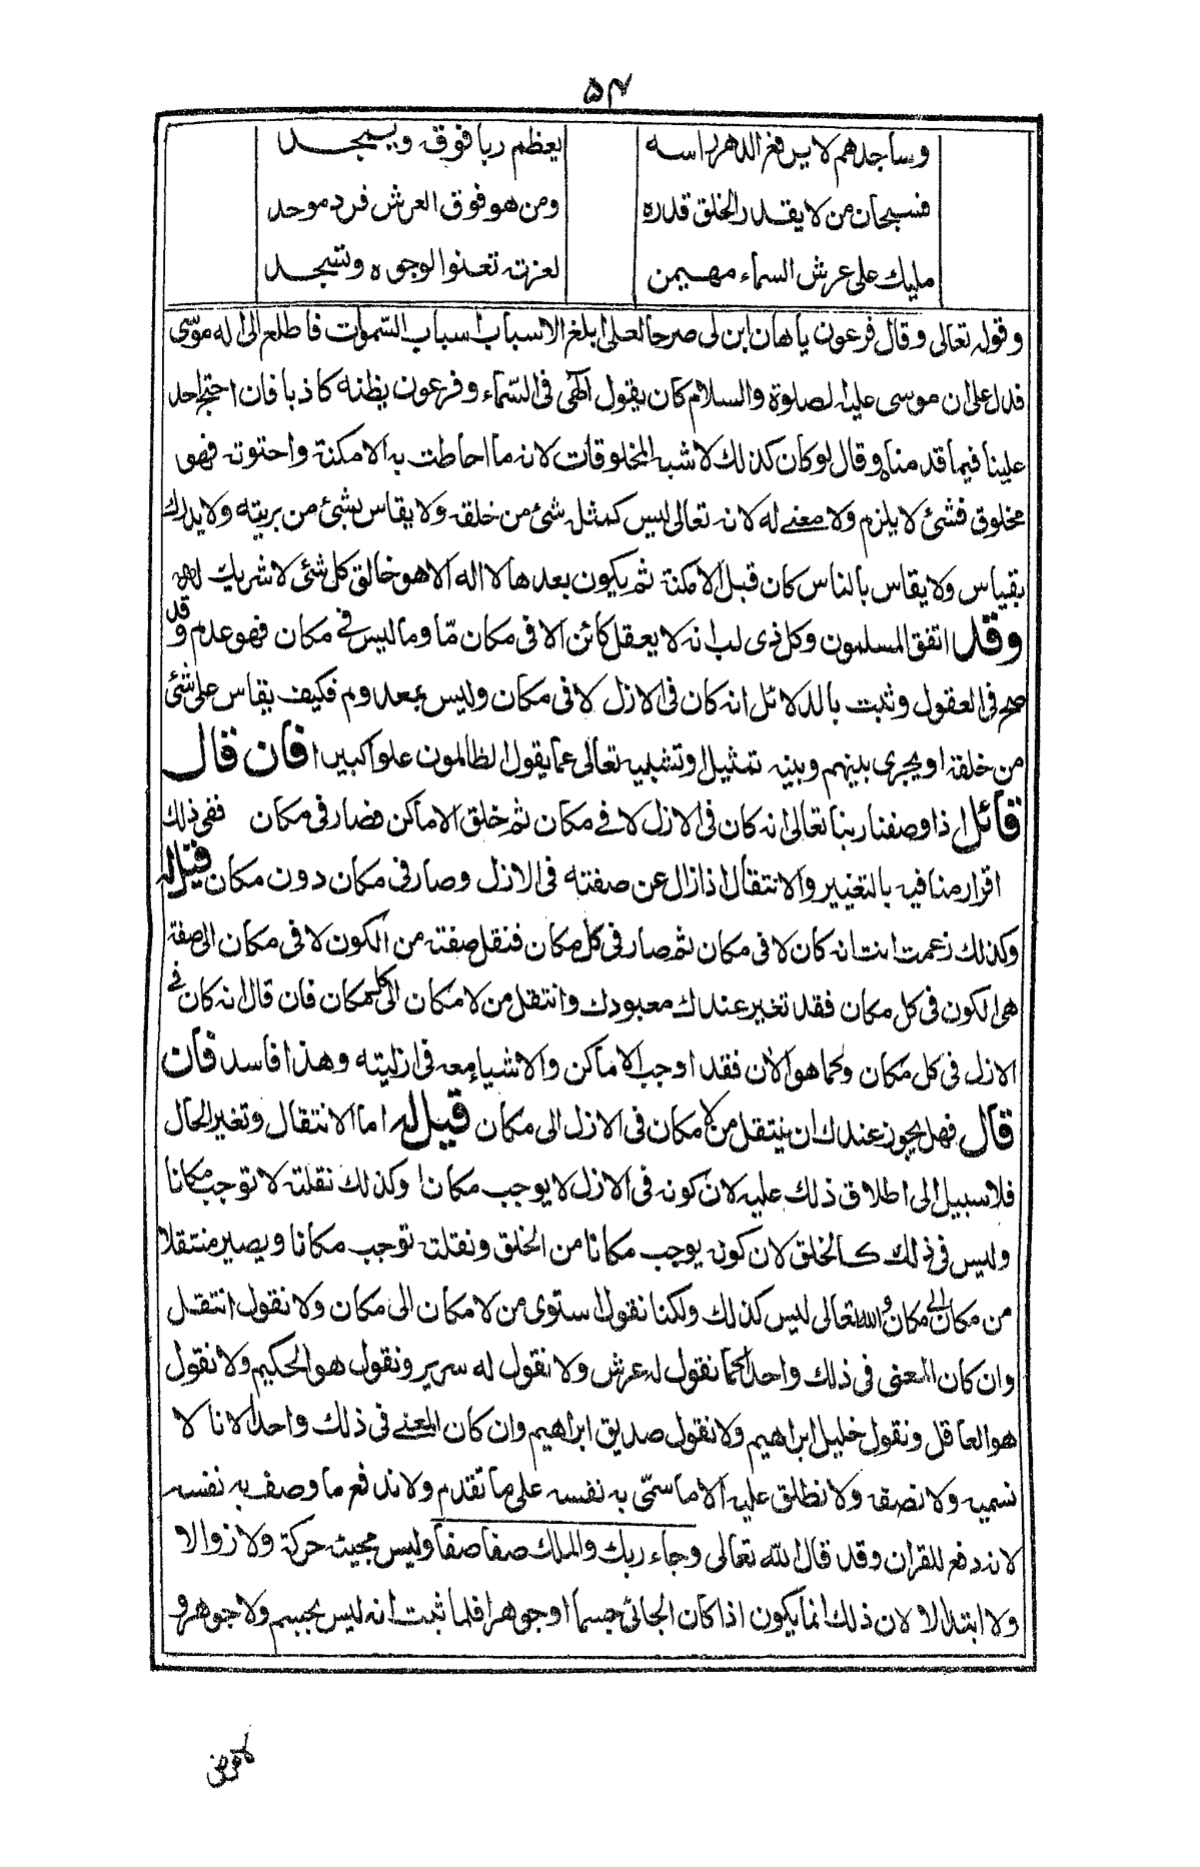 ۵۴
وساجدهم لا يرفع الدهر راسه يعظم ربا فوقه ويمجد
فسبحان من لا يقدر الخلق قدره ومن هو فوق العرش فرد موحد
مليك على عرش السماء مهيمن لعزته تعنوا الوجوه وتسجد
وقوله تعالى وقال فرعون ياهامان ابن لى صرحا لعلى ابلغ الاسباب اسباب السّموات فاطلع الى اله موسى
فدل على ان موسى عليه الصلوة والسلام كان يقول الٰهى فى السّماء وفرعون يظنه كاذبا فان احتج احد
علينا فيما قدمناه وقال لو كان كذلك لاشبه المخلوقات لانه ما احاطت به الامكنة واحتوته فهو
مخلوق فشئ لا يلزم ولا معنے له لانه تعالى ليس كمثله شئ من خلقه ولا يقاس بشئ من بريته ولا يدرك
بقياس ولا يقاس بالناس كان قبل الامكنة ثم يكون بعدها لا اله الا هو خالق كل شئ لا شريك له
وقد اتفق المسلمون وكل ذى لب انه لا يعقل كائن الا فى مكان مّا وما ليس فى مكان فهو عدم وقد
صح فى العقول وثبت بالدلائل انه كان فى الازل لا فى مكان وليس بمعدوم فكيف يقاس على شئ
من خلقه او يجرى بينهم وبينه تمثيل او تشبيه تعالى عما يقول الظالمون علوا كبيرا فان قال
قائل اذا وصفنا ربنا تعالى انه كان فى الازل لا فے مكان ثم خلق الاماكن فصار فى مكان ففى ذلك
اقرار منا فيه بالتغيير والانتقال اذا زال عن صفته فى الازل وصار فى مكان دون مكان قيل له
وكذلك زعمت انت انه كان لا فى مكان ثم صار فى كل مكان فنقل صفته من الكون لا فى مكان الى صفة
هى الكون فى كل مكان فقد تغير عندك معبودك وانتقل من لا مكان الى كل مكان فان قال انه كان فے
الازل فى كل مكان وكما هو الأن فقد اوجب الاماكن والاشياء معه فى ازليته وهذا فاسد فان
قال فهل يجوز عندك ان ينتقل من لا مكان فى الازل الى مكان قيل له اما الانتقال وتغير الحال
فلا سبيل الى اطلاق ذلك عليه لان كونه فى الازل لا يوجب مكانا وكذلك نقلته لا توجب مكانا
وليس فى ذلك كالخلق لان كونه يوجب مكانا من الخلق ونقلته توجب مكانا ويصير منتقلا
من مكان الى مكان والله تعالى ليس كذلك ولكنا نقول استوى من لا مكان الى مكان ولا نقول انتقل
وان كان المعنى فى ذلك واحدا كما نقول له عرش ولا نقول له سرير ونقول هو الحكيم ولا نقول
هو العاقل ونقول خليل ابراهيم ولا نقول صديق ابراهيم وان كان المعنے فى ذلك واحدا لانا لا
نسميه ولا نصفه ولا نطلق عليه الا ما سمّى به نفسه على ما تقدم ولا ندفع ما وصف به نفسه
لانه دفع للقران وقد قال الله تعالى وجاء ربك والملك صفا صفا وليس مجيئه حركة ولا زوالا
ولا ابتدالا لان ذلك انما يكون اذا كان الجائى جسما او جوهرا فلما ثبت انه ليس بجسم ولا جوهر و